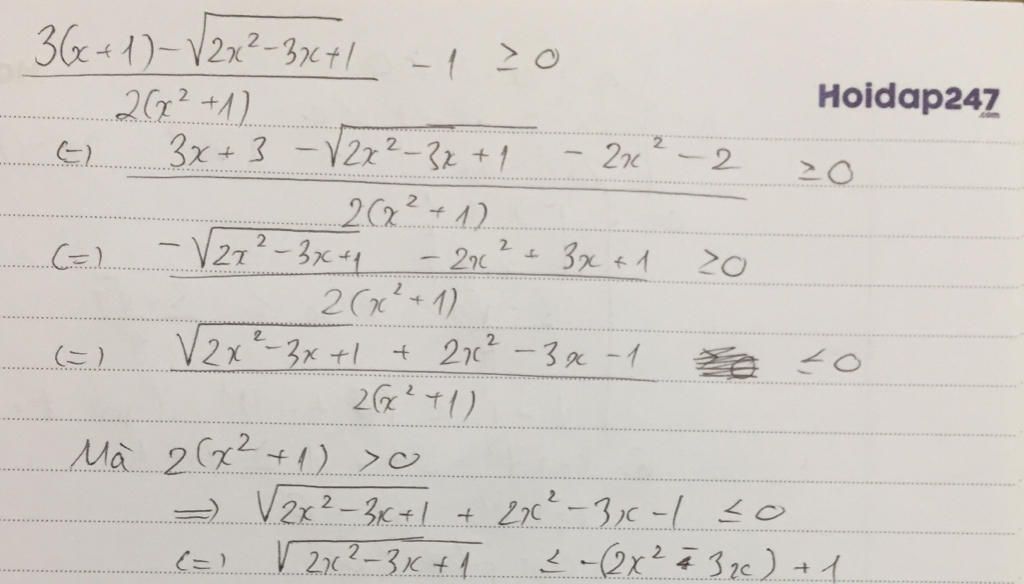 3(x+1)-√(2x²-3x+1) / 2(x²+1) - 1 ≥ 0
Hoidap247
.com
(=) 3x+3 -√(2x²-3x+1) - 2x² - 2 / 2(x²+1) ≥0
(=) -√(2x²-3x+1) - 2x² + 3x+1 / 2(x²+1) ≥0
(=) √(2x²-3x+1) + 2x² -3x -1 / 2(x²+1) ≤0
Mà 2(x²+1) >0
=> √(2x²-3x+1) + 2x²-3x-1 ≤0
(=) √(2x²-3x+1) ≤ -(2x²-3x)+1